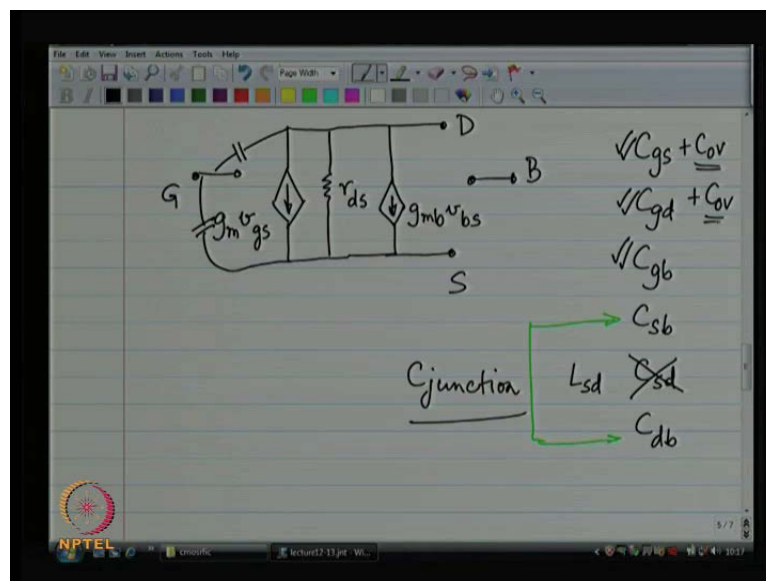 File Edit View Insert Actions Tools Help
Page Width
B I
D
G
g_m v_gs
r_ds
g_mb v_bs
B
S
√C_gs + C_ov
√C_gd + C_ov
√C_gb
C_sb
C_junction
L_sd C_sd
C_db
5 / 7
NPTEL
cmosrfic
lecture12-13.jnt - Wi...
10:17